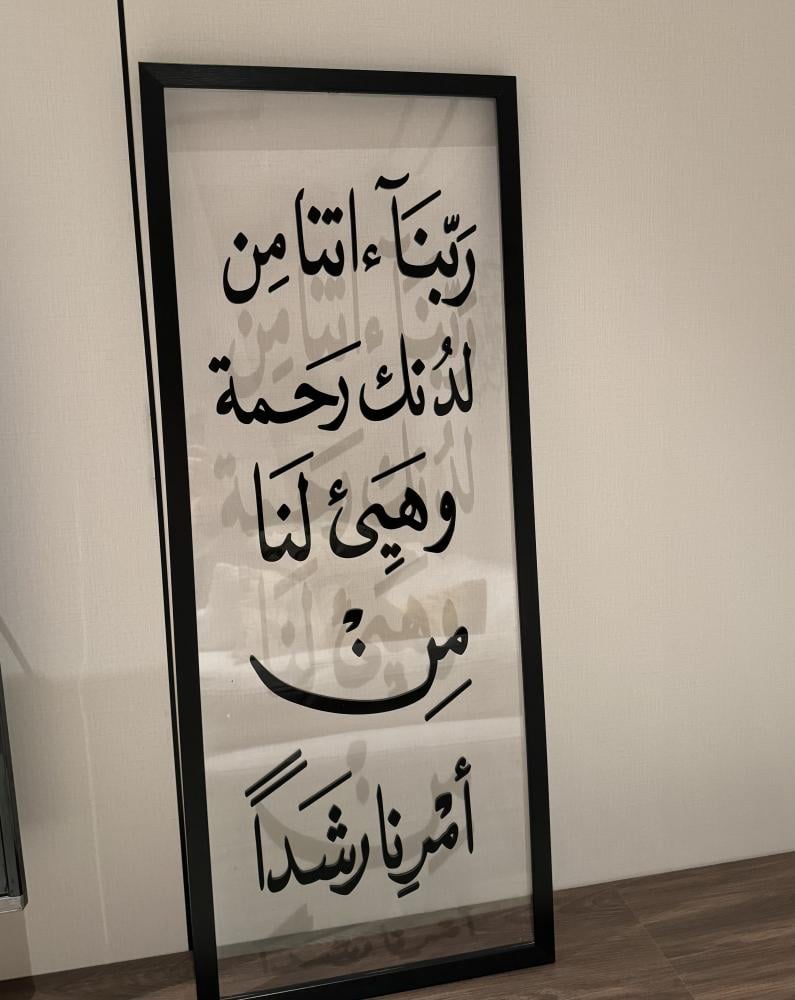 رَبَّنَآ ءاتنا مِن
لدُنك رَحمة
وهَيِئ لَنَا
مِنْ
أمْرِنا رشَداً